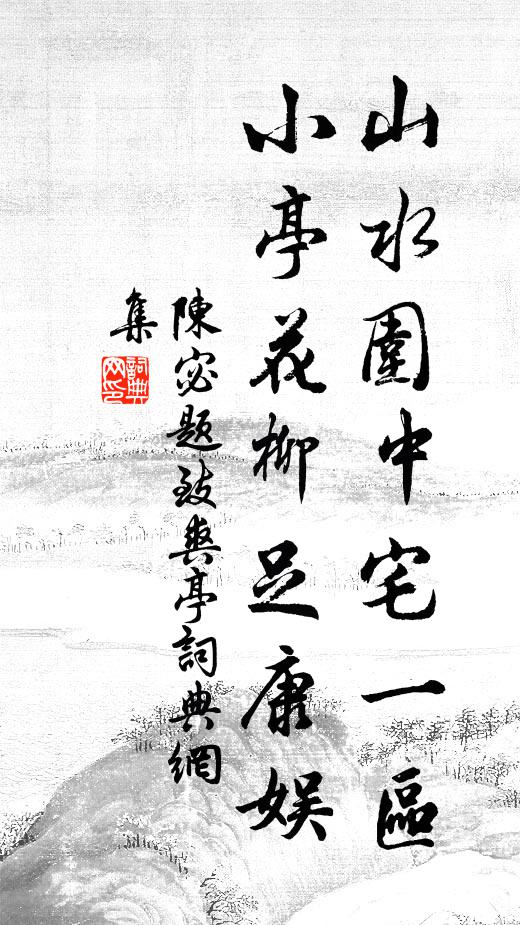 山水圍中宅一區
小亭花柳足康娛
陳宓題致爽亭詞典網
集
詞典
网印